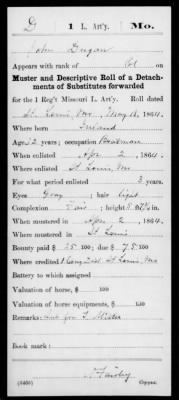 D 1 L. Art'y. Mo.
John Dugan
Appears with rank of
Muster and Descriptive Roll of a Detach-
ments of Substitutes forwarded
for the 1 Reg't Missouri L. Art'y. Roll dated
St. Louis, Mo, May 18, 1864.
Where born Ireland
Age 32 years; occupation Boatman
When enlisted Apr 2, 1864
Where enlisted St Louis, Mo
For what period enlisted 3 years.
Eyes Gray; hair Light
Complexion Fair; height 5 ft. in.
When mustered in Apr 2, 1864.
Where mustered in St Louis
Bounty paid $ 25 100; due $ 75 100
Where credited St Louis, Mo
Battery to which assigned
Valuation of horse, $ 100
Valuation of horse equipments, $ 100
Remarks: sub for
Book mark:
Copyist.